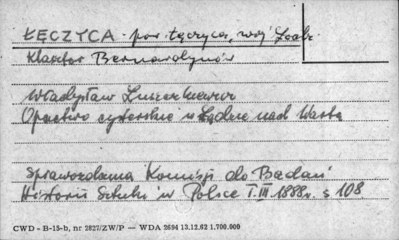 ŁĘCZYCA - pow. Łęczyca, woj. Łódź
Klasztor Bernardynów
Władysław Łuszczkiewicz
Opactwo cysterskie w Lądzie nad Wartą
Sprawozdania Komisji do Badań
Historii Sztuki w Polsce T. III. 1888 r. s 108
CWD - B-15-b, nr 2827/ZW/P — WDA 2694 13.12.62 1.700.000